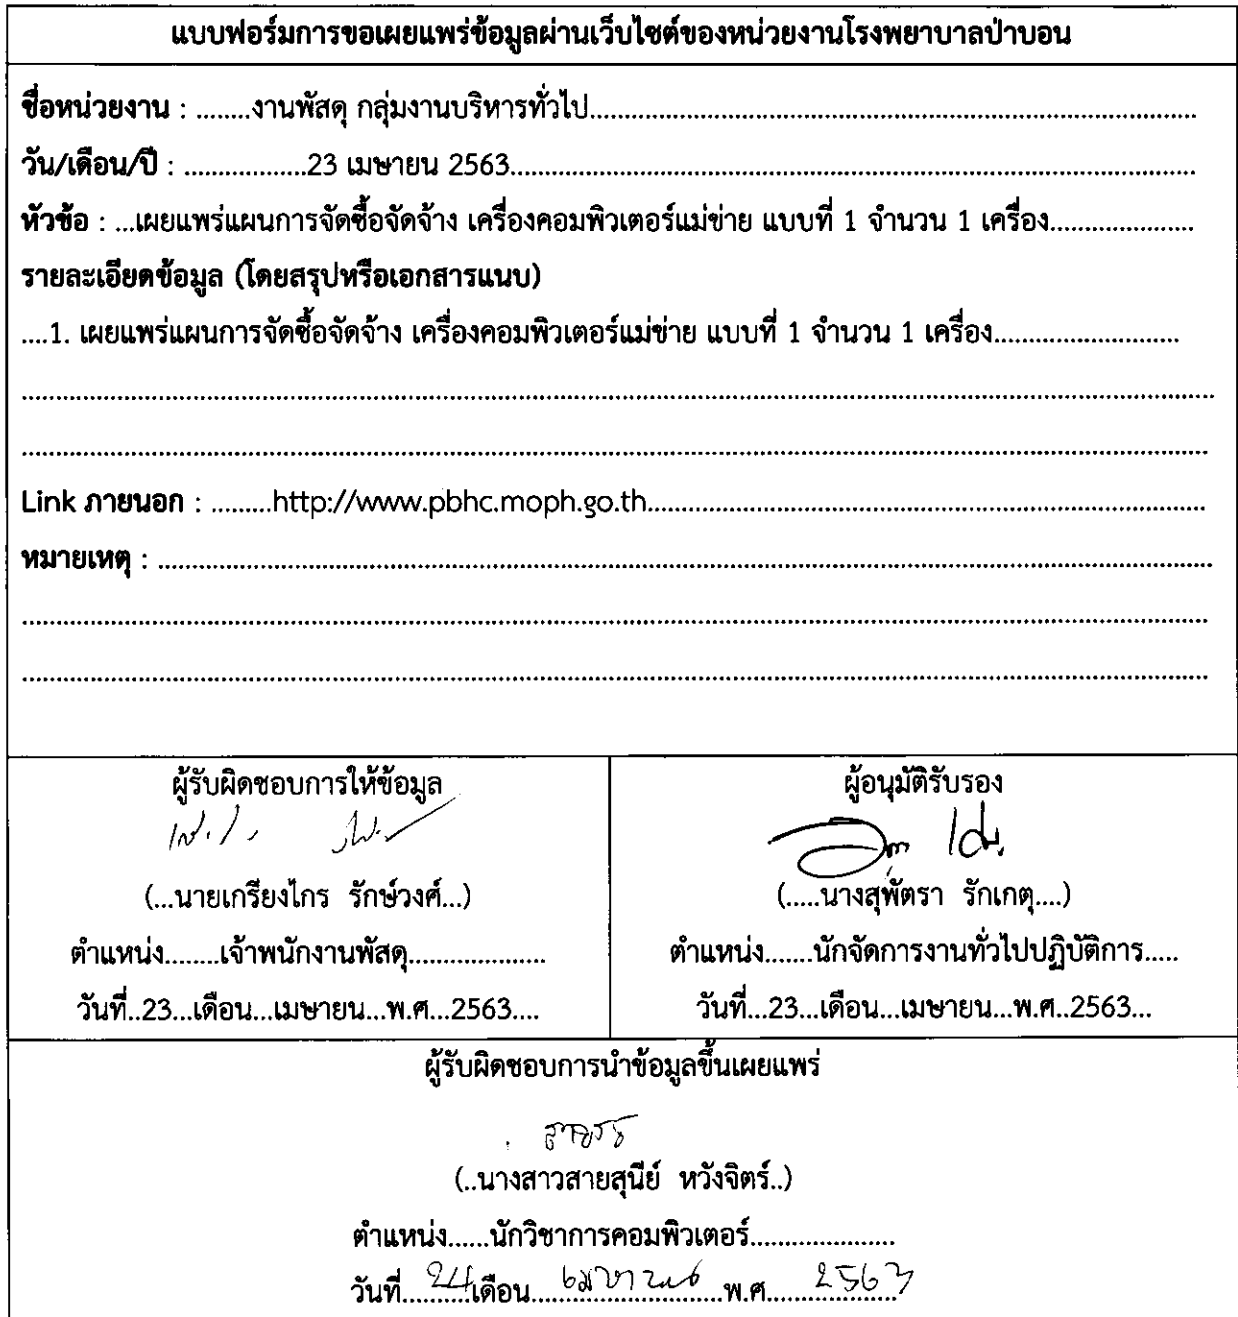 แบบฟอร์มการขอเผยแพร่ข้อมูลผ่านเว็บไซต์ของหน่วยงานโรงพยาบาลป่าบอน
ชื่อหน่วยงาน : ........งานพัสดุ กลุ่มงานบริหารทั่วไป........................................................................................
วัน/เดือน/ปี : ..................23 เมษายน 2563....................................................................................................
หัวข้อ : ...เผยแพร่แผนการจัดซื้อจัดจ้าง เครื่องคอมพิวเตอร์แม่ข่าย แบบที่ 1 จำนวน 1 เครื่อง.....................
รายละเอียดข้อมูล (โดยสรุปหรือเอกสารแนบ)
....1. เผยแพร่แผนการจัดซื้อจัดจ้าง เครื่องคอมพิวเตอร์แม่ข่าย แบบที่ 1 จำนวน 1 เครื่อง...........................
Link ภายนอก : .........http://www.pbhc.moph.go.th.................................................................................
หมายเหตุ : ..........................................................................................................................................................
ผู้รับผิดชอบการให้ข้อมูล
(...นายเกรียงไกร รักษ์วงศ์...)
ตำแหน่ง........เจ้าพนักงานพัสดุ....................
วันที่..23...เดือน...เมษายน...พ.ศ...2563....
ผู้อนุมัติรับรอง
(.....นางสุพัตรา รักเกตุ....)
ตำแหน่ง.......นักจัดการงานทั่วไปปฏิบัติการ.....
วันที่...23...เดือน...เมษายน...พ.ศ..2563...
ผู้รับผิดชอบการนำข้อมูลขึ้นเผยแพร่
(..นางสาวสายสุนีย์ หวังจิตร์..)
ตำแหน่ง......นักวิชาการคอมพิวเตอร์.....................
วันที่....24....เดือน....เมษายน....พ.ศ....2563